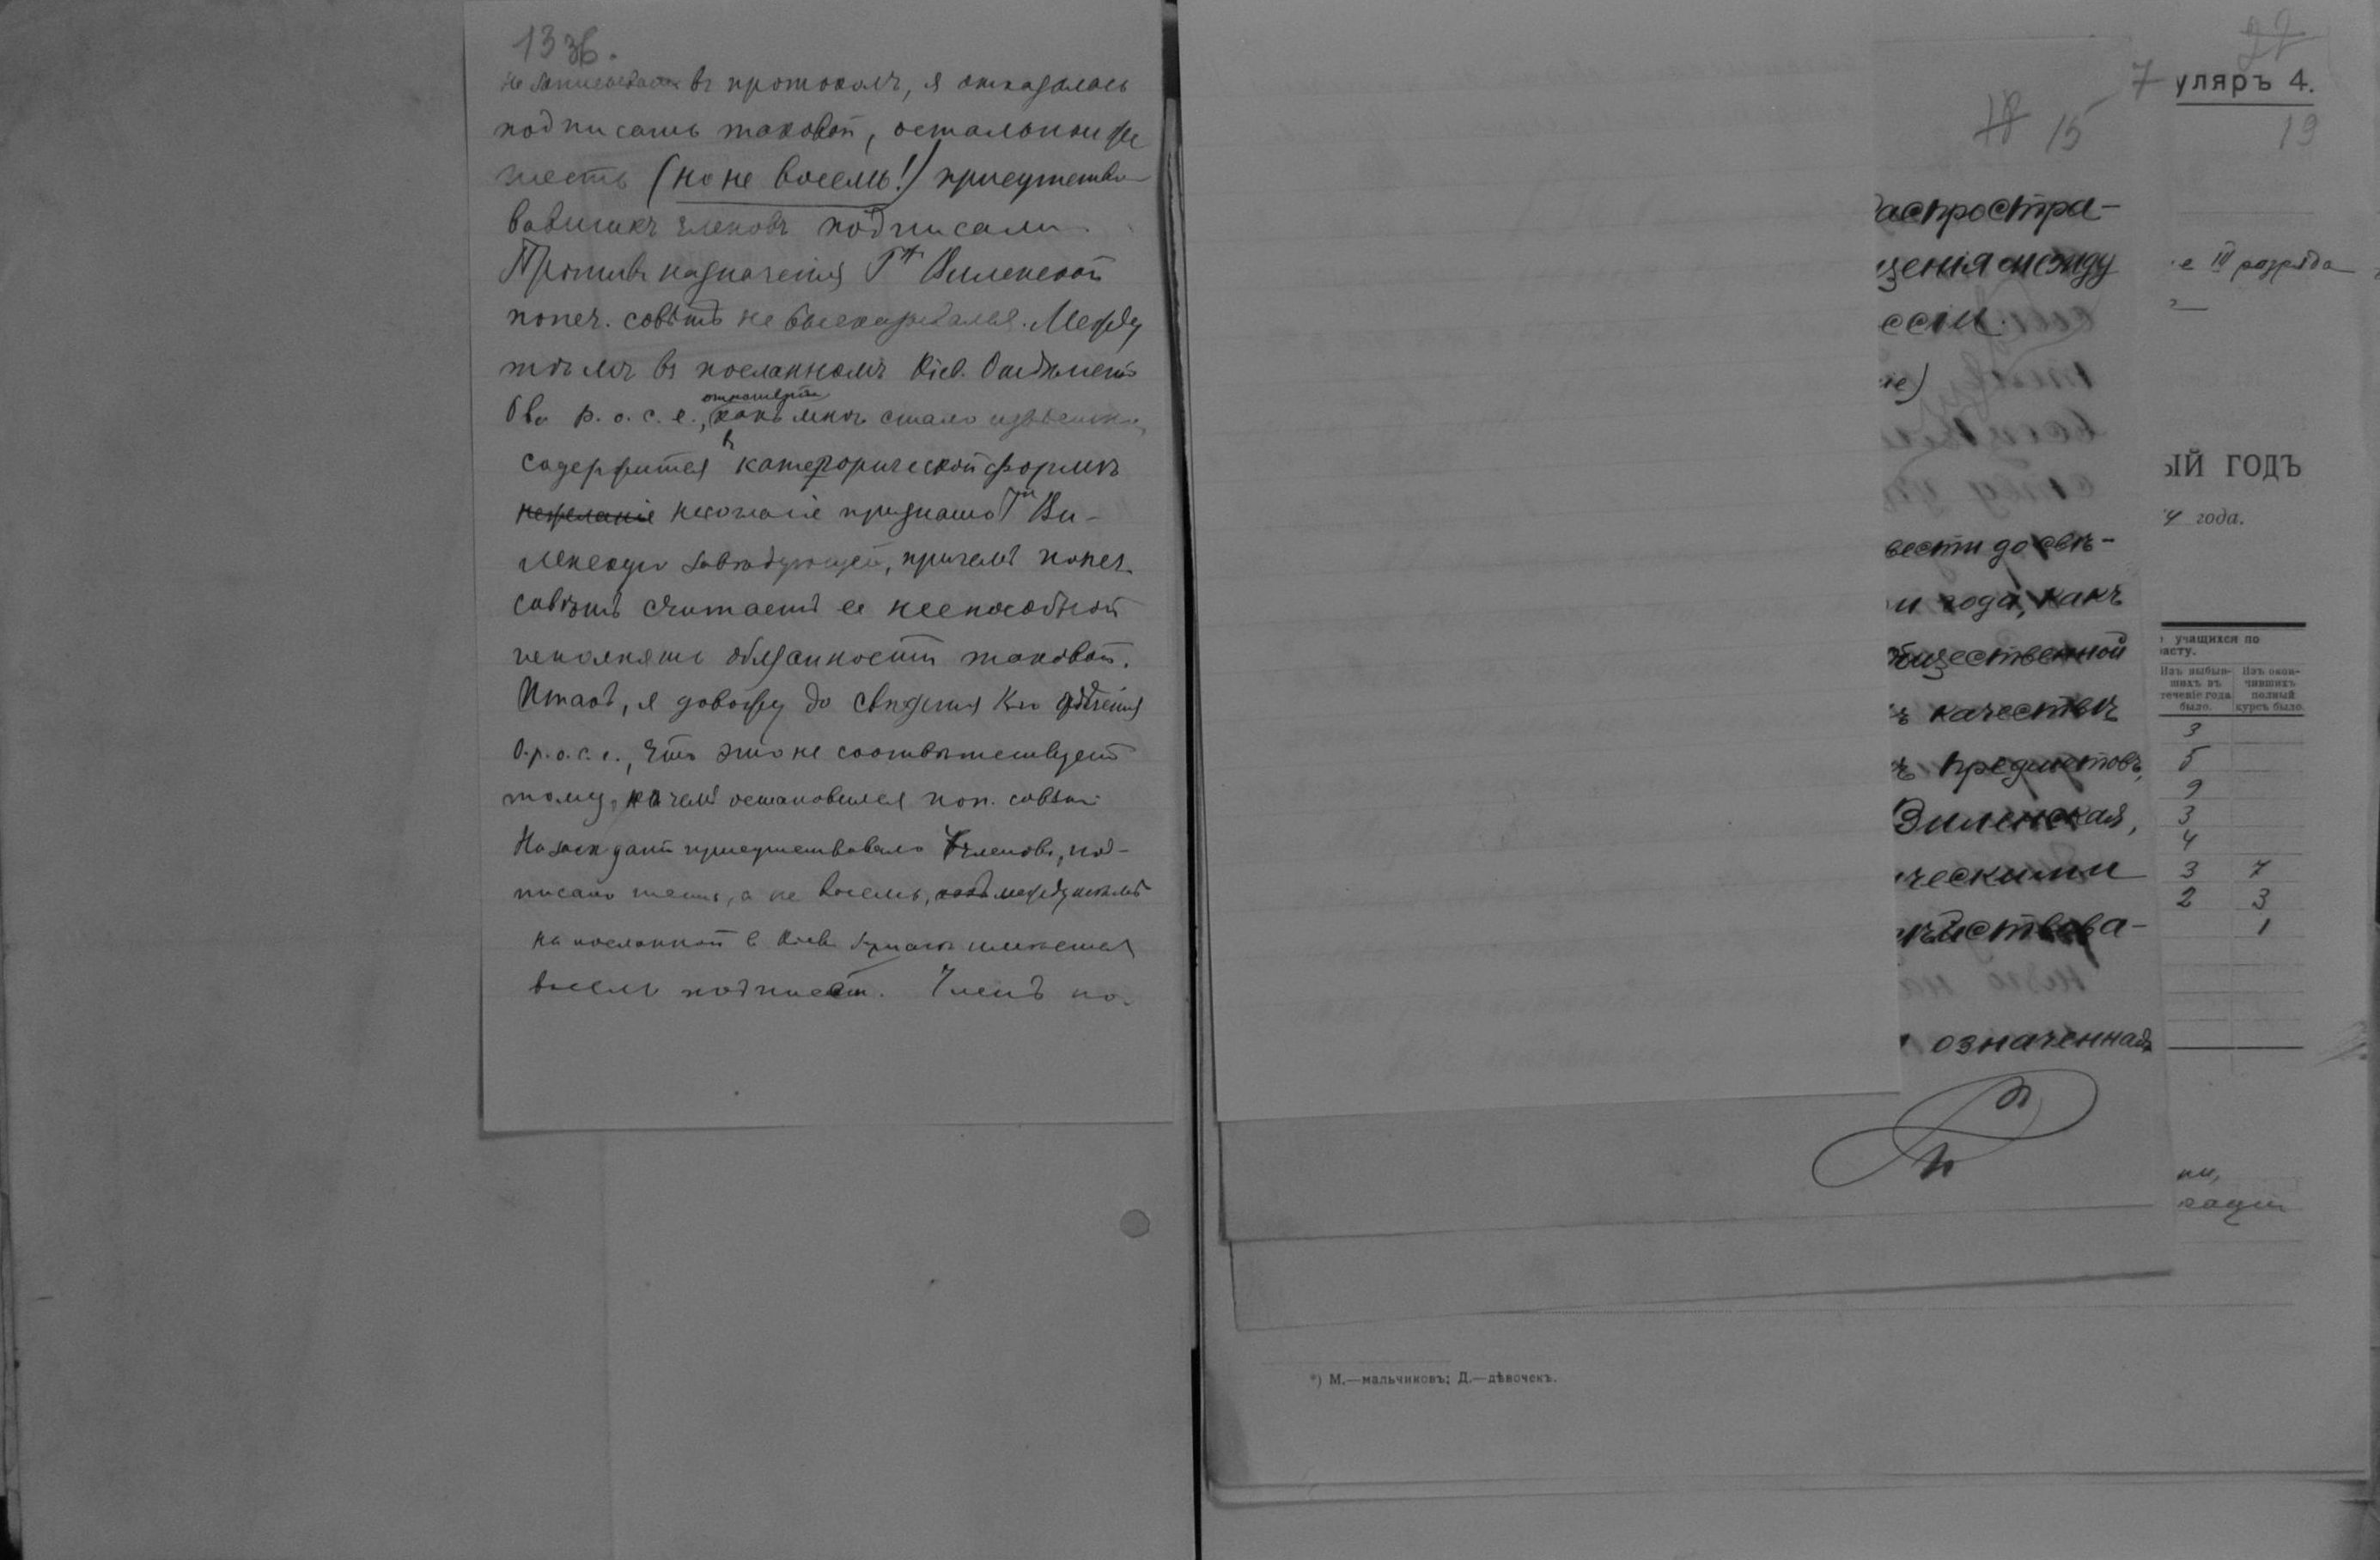 13 зв.
не записывались въ протоколъ, я отказалась
подписать таковой, остальные же
шесть (но не восемь!) присутство-
вавшихъ членовъ подписали.
Противъ назначенія Г-жи Виленской
попеч. совѣтъ не высказывался. Между
тѣмъ въ посланномъ Кіев. Отдѣленію
О ва р. о. с. е., какъ мнѣ стало извѣстно,
отношеніи
содержится въ категорической формѣ
нежеланіе несогласіе признать Г-жу Ви-
ленскую завѣдующей, причемъ попеч.
совѣтъ считаетъ ее неспособной
исполнять обязанности таковой.
Итакъ, я довожу до свѣдѣнія К-го отдѣленія
О. р. о. с. е., что это не соотвѣтствуетъ
тому, на чемъ остановился поп. совѣтъ
На засѣданіи присутствовало 7 членовъ, под-
писало шесть, а не восемь, между тѣмъ
на посланной в Кіевъ бумагѣ имѣется
восемь подписей. Членъ по-
22
7
уляръ 4.
18 15
19
распростра-
щенія между
ссіи.
е III разряда
ie)
ЫЙ ГОДЪ
4 года.
вести до свѣ-
и года, какъ
общественной
ъ качествѣ
ъ предметовъ,
Виленская,
ическими
ѣйствова-
означенная
учащихся по
расту.
Изъ выбыв-
шихъ въ
теченіе года
было.
Изъ окон-
чившихъ
полный
курсъ было.
3
5
9
3
4
3 7
2 3
1
ии,
зации
*) М.—мальчиковъ; Д.—дѣвочекъ.